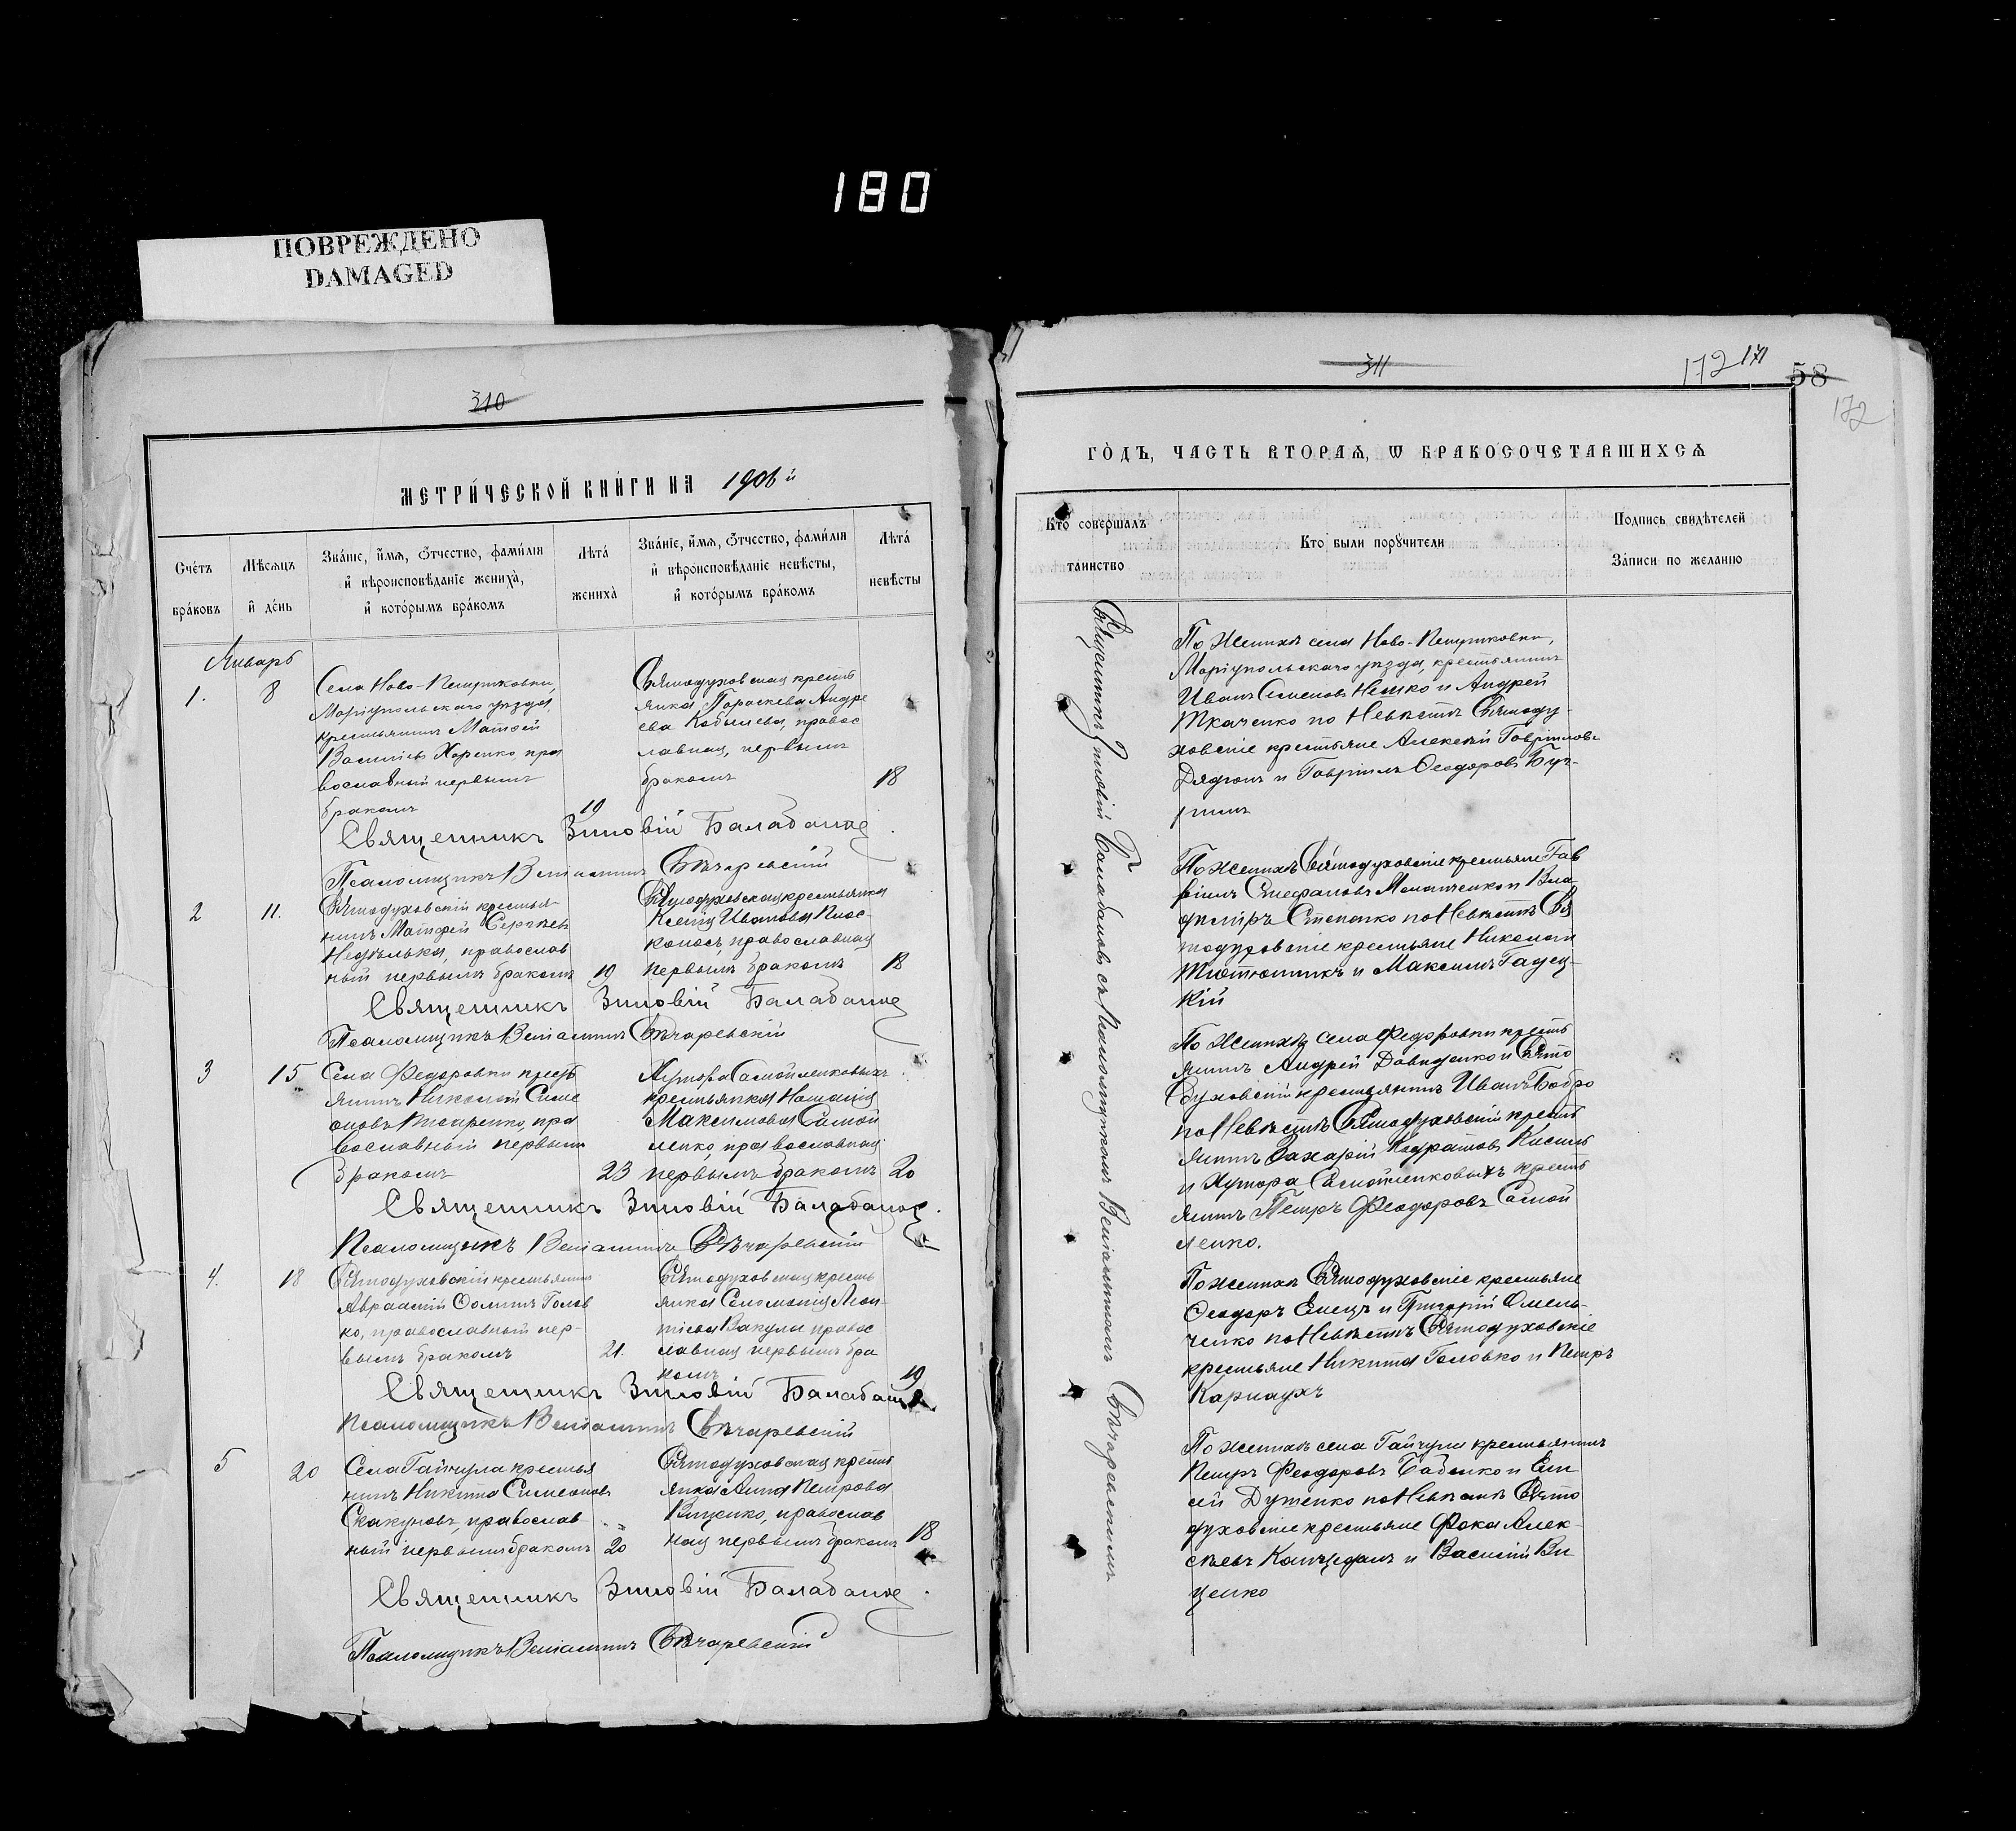 180
ПОВРЕЖДЕНО
DAMAGED
310
МЕТРИ́ЧЕСКОЙ КНИ́ГИ НА 1906 й
Сче́тъ бра́ковъ
Мѣсяцъ и҆ де́нь
Зва́нїе, и҆́мѧ, ѻ҆́тчество, фами́лїѧ
и҆ вѣроисповѣ́данїе жениха̀,
и҆ кото́рымъ бра́комъ
Лѣта́ жениха̀
Зва́нїе, и҆́мѧ, ѻ҆́тчество, фами́лїѧ
и҆ вѣроисповѣ́данїе невѣ́сты,
и҆ кото́рымъ бра́комъ
Лѣта́ невѣ́сты
Январь
1. 8
Села Ново-Петриковки,
Маріупольскаго уѣзда,
крестьянинъ Матѳей
Васильевъ Харенко, пра
вославный первымъ
бракомъ
19
Святодуховская кресть
янка Параскева Андре
ева Кобылева, правос
лавная, первымъ
бракомъ
18
Священникъ Зиновій Балабанов
Псаломщикъ Веніаминъ Свѣчаревскій
2 11.
Святодуховскій крестья
нинъ Матѳей Сергѣев
Недѣлька, православ
ный первымъ бракомъ 19
Святодуховская крестьянка
Ксенія Иванова Плос-
колосъ, православная
первымъ бракомъ 18
Священникъ Зиновій Балабанов
Псаломщикъ Веніаминъ Свѣчаревскій
3 15
Села Федоровки крест
янинъ Николай Симе
оновъ пра
вославный первым
бракомъ 23
Хутора Самойленковыхъ
крестьянка Наталія
Максимова Самой
ленко, православная
первымъ бракомъ 20
Священникъ Зиновій Балабанов
Псаломщикъ Веніаминъ Свѣчаревскій
4. 18
Святодуховскій крестьянин
Авраамій Ѳоминъ Голов
ко, православный пер-
вымъ бракомъ 21.
Святодуховская кресть
янка Соломонія Леон-
тіева Вакула правос
лавная первымъ бра
комъ 19
Священникъ Зиновій Балабанов
Псаломщикъ Веніаминъ Свѣчаревскій
5 20
Села Гайчула крестья
нинъ Никита Симеоновъ
Скакуновъ, православ
ный первымъ бракомъ 20
Святодуховская кресть
янка Анна Петрова
Виценко, православ
ная первымъ бракомъ 18
Священникъ Зиновій Балабанов
Псаломщикъ Веніаминъ Свѣчаревскій
311
172 171
58
172
ГО́ДЪ, ЧАСТЬ ВТОРАѦ, Ѿ БРАКОСОЧЕТАВШИХСѦ
Кто̀ соверша́лъ
та́инство
Кто̀ бы́ли порꙋчи́тели
Подпись свидѣ́телей
За́писи по жела́нїю
Священникъ Зиновій Балабановъ съ Псаломщикомъ Веніаминомъ Свѣчаревскимъ
По Женихѣ села Ново-Петриковки,
Маріупольскаго уѣзда, крестьянинъ
Иванъ Семеновъ Нешко и Андрей
Ткаченко по Невѣстѣ Святоду-
ховскіе крестьяне Алексѣй Гавріиловъ
Дядюнъ и Гавріилъ Ѳеодоровъ Буг-
ринъ
По Женихѣ Святодуховскіе крестьяне Гав
ріилъ Стефановъ Меланченко и Вла
диміръ Степенко по Невѣстѣ Свя
тодуховскіе крестьяне Николай
Тютюнникъ и Максимъ Гадец-
кій
По Женихѣ села Федоровки кресть
янинъ Андрей Давиденко и Свято
духовскій крестьянинъ Иванъ Бобро
по Невѣстѣ Святодуховскій кресть
янинъ Захарій Кодратовъ Кисиль
и Хутора Самойленковыхъ кресть
янинъ Петръ Феодоровъ Самой
ленко.
По женихѣ Святодуховскіе крестьяне
Ѳеодоръ Емецъ и Григорій Омель-
ченко по Невѣстѣ Святодуховскіе
крестьяне Никита Головко и Петръ
Карнаухъ
По женихѣ села Гайчула крестьянинъ
Петръ Феодоровъ Бабенко и Ели
сей Дутенко по Невѣстѣ Свято
духовскіе крестьяне Фока Алек-
сѣевъ Капъ и Василій Ви
ценко